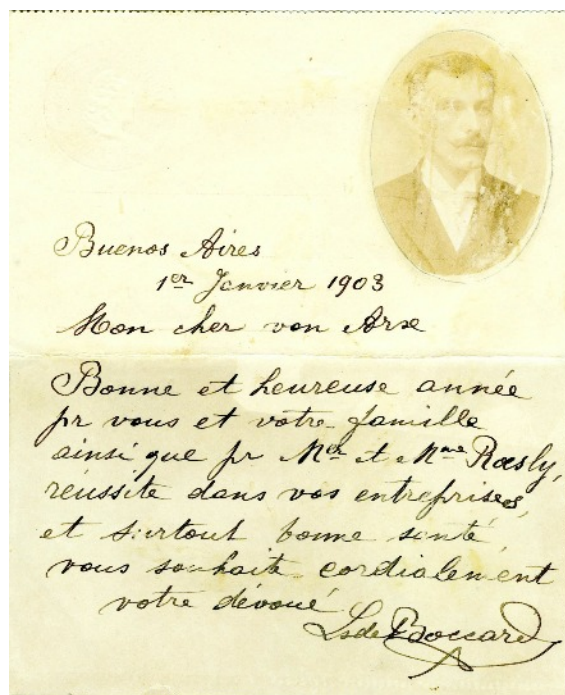 Buenos Aires
1er Janvier 1903
Mon cher von Arx
Bonne et heureuse année
pr vous et votre famille
ainsi que pr Mr et Mme Rœsly,
réussite dans vos entreprises,
et surtout bonne santé,
vous souhaite cordialement
votre dévoué
Ls de Boccard